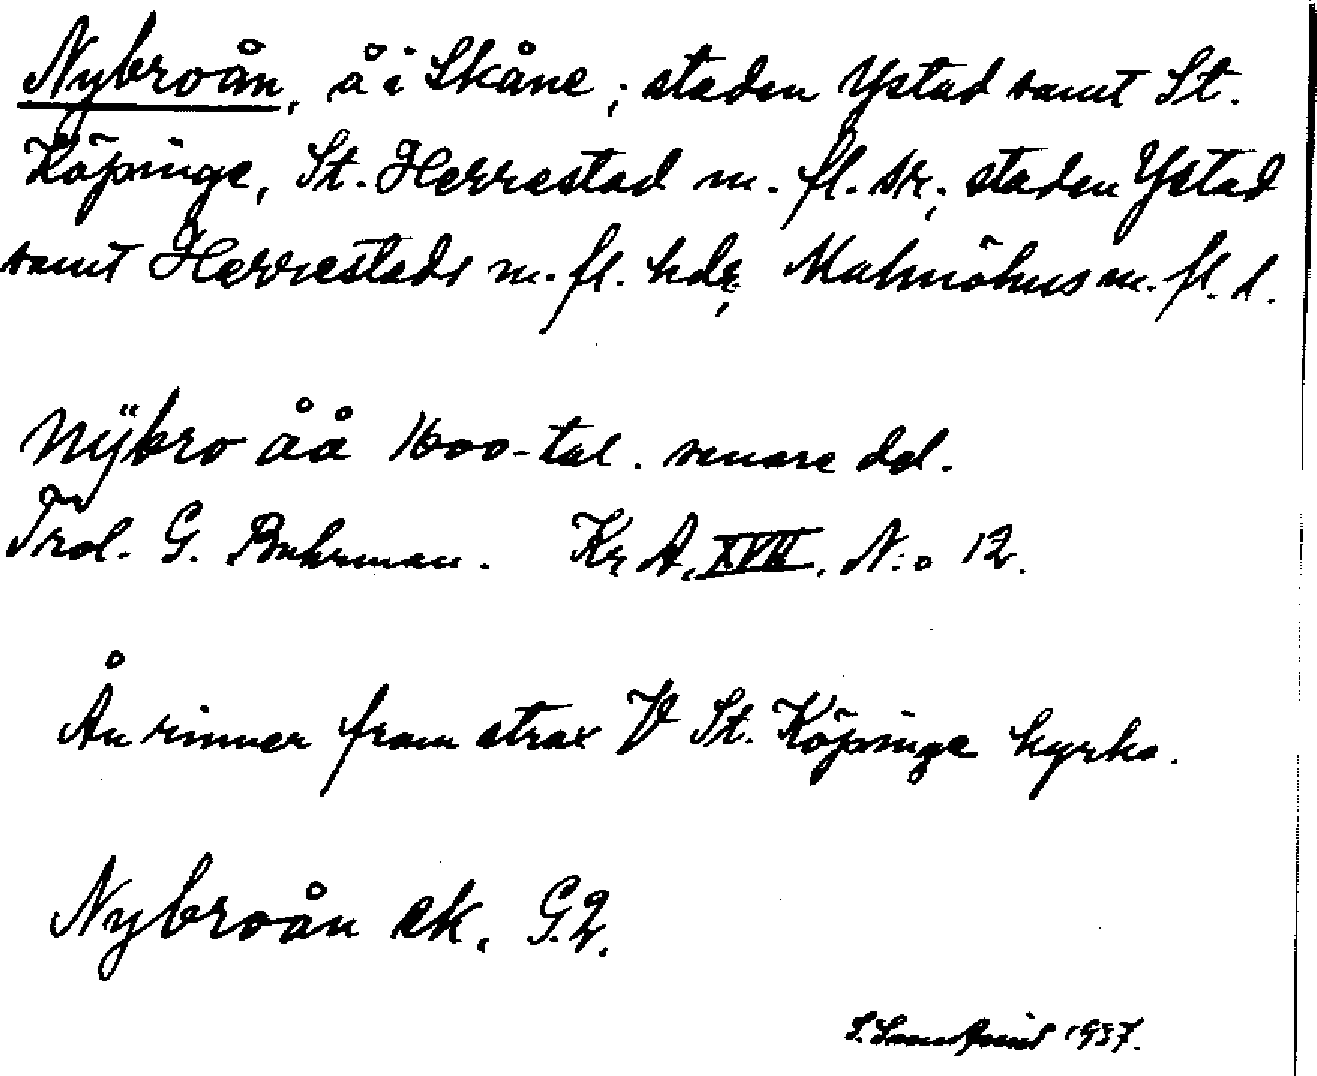 Nybroån, å i Skåne; staden Ystad samt St.
Köpinge, St. Herrestad m. fl. snr; staden Ystad
samt Herrestads m. fl. hdr, Malmöhus m. fl. l.
Nÿbro åå 1600-tal. senare del.
Trol. G. Buhrman. Kr. A. XVII. N:o 12.
Ån rinner fram strax V St. Köpinge kyrka.
Nybroån ek. G2.
1937.